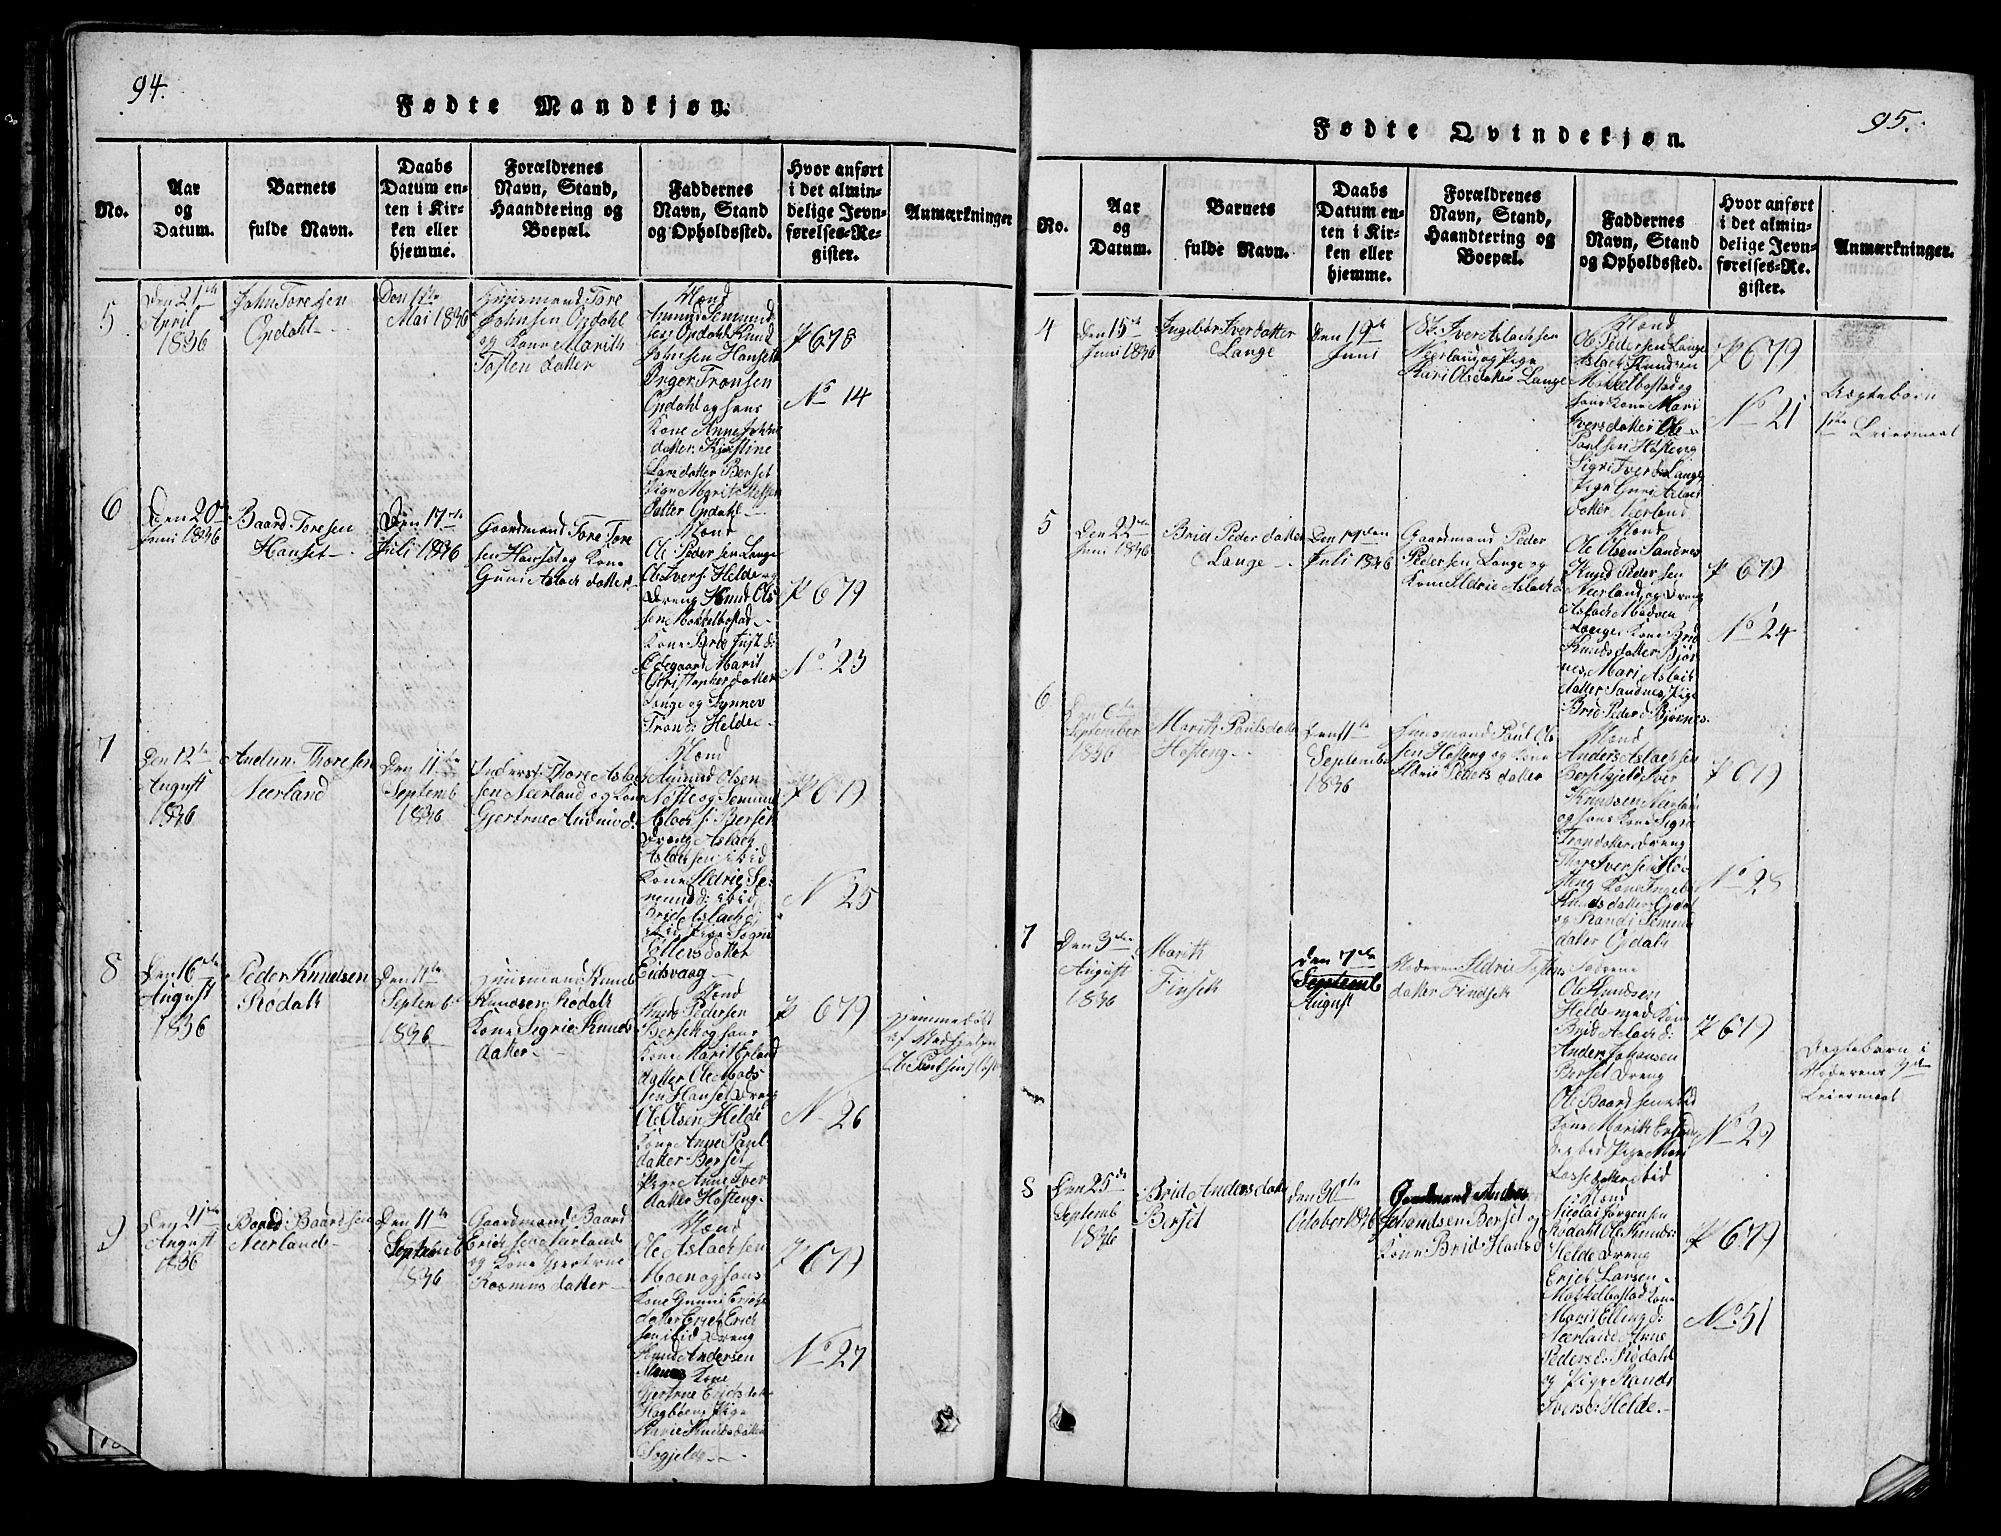 94.
Fødte Mandkjøn.
No.
Aar
og
Datum.
Barnets
fulde Navn.
Daabs
Datum en-
ten i Kir-
ken eller
hjemme.
Forældrenes
Navn, Stand,
Haandtering og
Boepæl.
Faddernes
Navn, Stand
og Opholdssted.
Hvor anført
i det almin-
delige Jevn-
førelses-Re-
gister.
Anmærkninger
5
Den 21de
April
1836
John Toresen
Opdahl
Den
Mai 1836
Huusmand Tore
Johnsen Opdahl
og Kone Marith
Tosten datter
Mænd
Amund Semund
sen Opdahl Knud
Johnsen Hanset
Inger Tronsen
Opdahl og hans
Kone Anne
datter Kirstine
Lars datter Berset
Pige Marit
datter Opdahl
P 678
No 14
6
Den 20de
Juni 1836
Baard Toresen
Hanset
Den 17de
Juli 1836
Gaardmand Tore Tore
sen Hanset og Kone
Guni Aslack datter
Mænd
Ole Peder sen Lange
Ole Ivers: Helde og
Dreng Knud Ols
sen Mokkelbostad
Kone Brid
Ødegaard Marit
Christopher datter
Lange og Synnev
Trond: Helde
P 679
No 23
7
Den 12te
August
1836
Audun Thoresen
Neerland
Den 11te
Septemb
1836
Inderst Thore Aslack
sen Neerland og Kone
Gjertrue Audun d:
Mænd
Amund Olsen
Nøste og Semund
Aslack s: Berset
Dreng Aslack
Aslacksen ibid
Kone Aldrie Se
mund d: ibid
Brid Aslack d:
ibid Pige Sigrie
Ellers datter
Eidsvaag
P 679
N 25
8
Den 16de
August
1836
Peder Knudsen
Rødalt
Den 11te
Septemb
1836
Huusmand Knud
Knudsen Rodalt
Kone Sigrie Knuds
datter
Mænd
Knud Pedersen
Berset og hans
Kone Marit Erland
datter Ole Mads
sen Hanset Dreng
Ole Olsen Helde
Kone Anne Paul
datter Berset
Pige Anne Iver
datter Hosteng
P 679
N 26
Hjemmedøbt
af
9
Den 21de
August
1836
Baard Baardsen
Neerland
Den 11te
Septemb
1836
Gaardmand Baard
Erichsen Neerland
og Kone Gjertrue
Rasmus datter
Mænd
Ole Aslachsen
Moen og hans
Kone Gunni Erichs
datter Erich Erich
sen ibid Dreng
Knud Andersen
Kone
Gjertrue Erichs dat
Hagbøen Pige
Marie Knuds datter
Sogjelde
P 679
No 27
95.
Fødte Qvindekjøn.
No.
Aar
og
Datum.
Barnets
fulde Navn.
Daabs
Datum en-
ten i Kir-
ken eller
hjemme.
Forældrenes
Navn, Stand,
Haandtering og
Boepæl.
Faddernes
Navn, Stand
og Opholdssted.
Hvor anført
i det almin-
delige Jevn-
førelses-Re-
gister.
Anmærkninger.
4
Den 15de
Juni 1836
Ingebor Iverdatter
Lange
Den 19de
Juni
Iver Aslachsen
Neerland og Pige
Kari Olsdatter Lange
Mænd
Ole Pedersen Lange
Aslach Knudsen
Mokkelbostad og
hans Kone Mari
Ivers datter Ole
Paulsen Hosteng
Sigri Iversd Lange
Pige Guri Aslac
datter Neerland
P 679
No 21
Uægtebarn
1ste Leiermaal
5
Den 22de
Juni 1836
Brid Peder datter
Lange
Den 17den
Juli 1836
Gaardmand Peder
Pedersen Lange og
Kone Aldrie Aslach d
Mænd
Ole Olsen Sandnes
Knud Pedersen
Neerland og Dreng
Aslach Madsen
Lange Kone Brid
Knuds datter Bjør
nes, Mari Aslak
datter Sandnes Pige
Brid Peder d Bjørnes
P 679
No 24
6
Den 6te
September
1836
Marith Pauls datter
Hosteng
Den 11te
September
1836
Huusmand Paul Ols
sen Hosteng og Kone
Aldrie Peders datter
Mænd
Anders Aslachsen
Iver
Knudsen Neerland
og hans Kone Sigri
Tron datter Dreng
Thore Iversen Ho
steng Kone Ingebor
Knuds datter Opdal
og Randi Semund
datter Opdalt
P 679
No 28
7
Den 3die
August
1836
Marith
Finset
Den 7de
Septemb
August
Moderen Aldrie Tostens
datter Findset
Fadderne
Ole Knudsen
Helde med Kone
Brid Aslach d:
Anders Johansen
Berset Dreng
Ole Baardsen ibid
Kone Marith Erland
d ibid Pige Mari
Lasse datter ibid
P 679
No 29
Uegtebarn i
Moderens 2det
Leiermaal
8
Den 25de
Septemb
1836
Brid Anders datter
Berset
Den 30te
October 1836
Gaardmand Anders
Johandsen Berset og
Kone Brid Hansd
Mænd
Nicolai Jørgensen
Rødahl Ole Knuds:
Helde Dreng
Erich Larsen
Mokkelbostad Kone
Marit Elling d:
Neerland Anne
Peders d: Rødahl
og Pige Randi
Ivers d: Helde
P 679
No 31